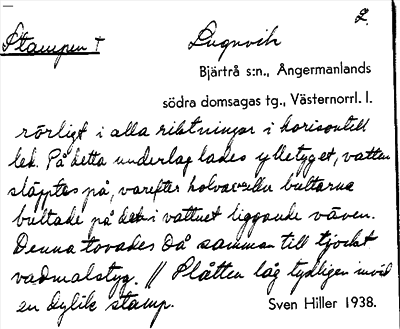 2.
Stampen † Lugnvik
Bjärtrå s:n., Ångermanlands
södra domsagas tg., Västernorrl. l.
rörligt i alla riktningar i horisontell
led. På detta underlag lades ylletyget, vatten
släpptes på, varefter kolvar eller bultarna
bultade på det i vattnet liggande väven.
Denna tovades då samman till tjockt
vadmalstyg. // Plåtten låg tydligen invid
en dylik stamp. Sven Hiller 1938.